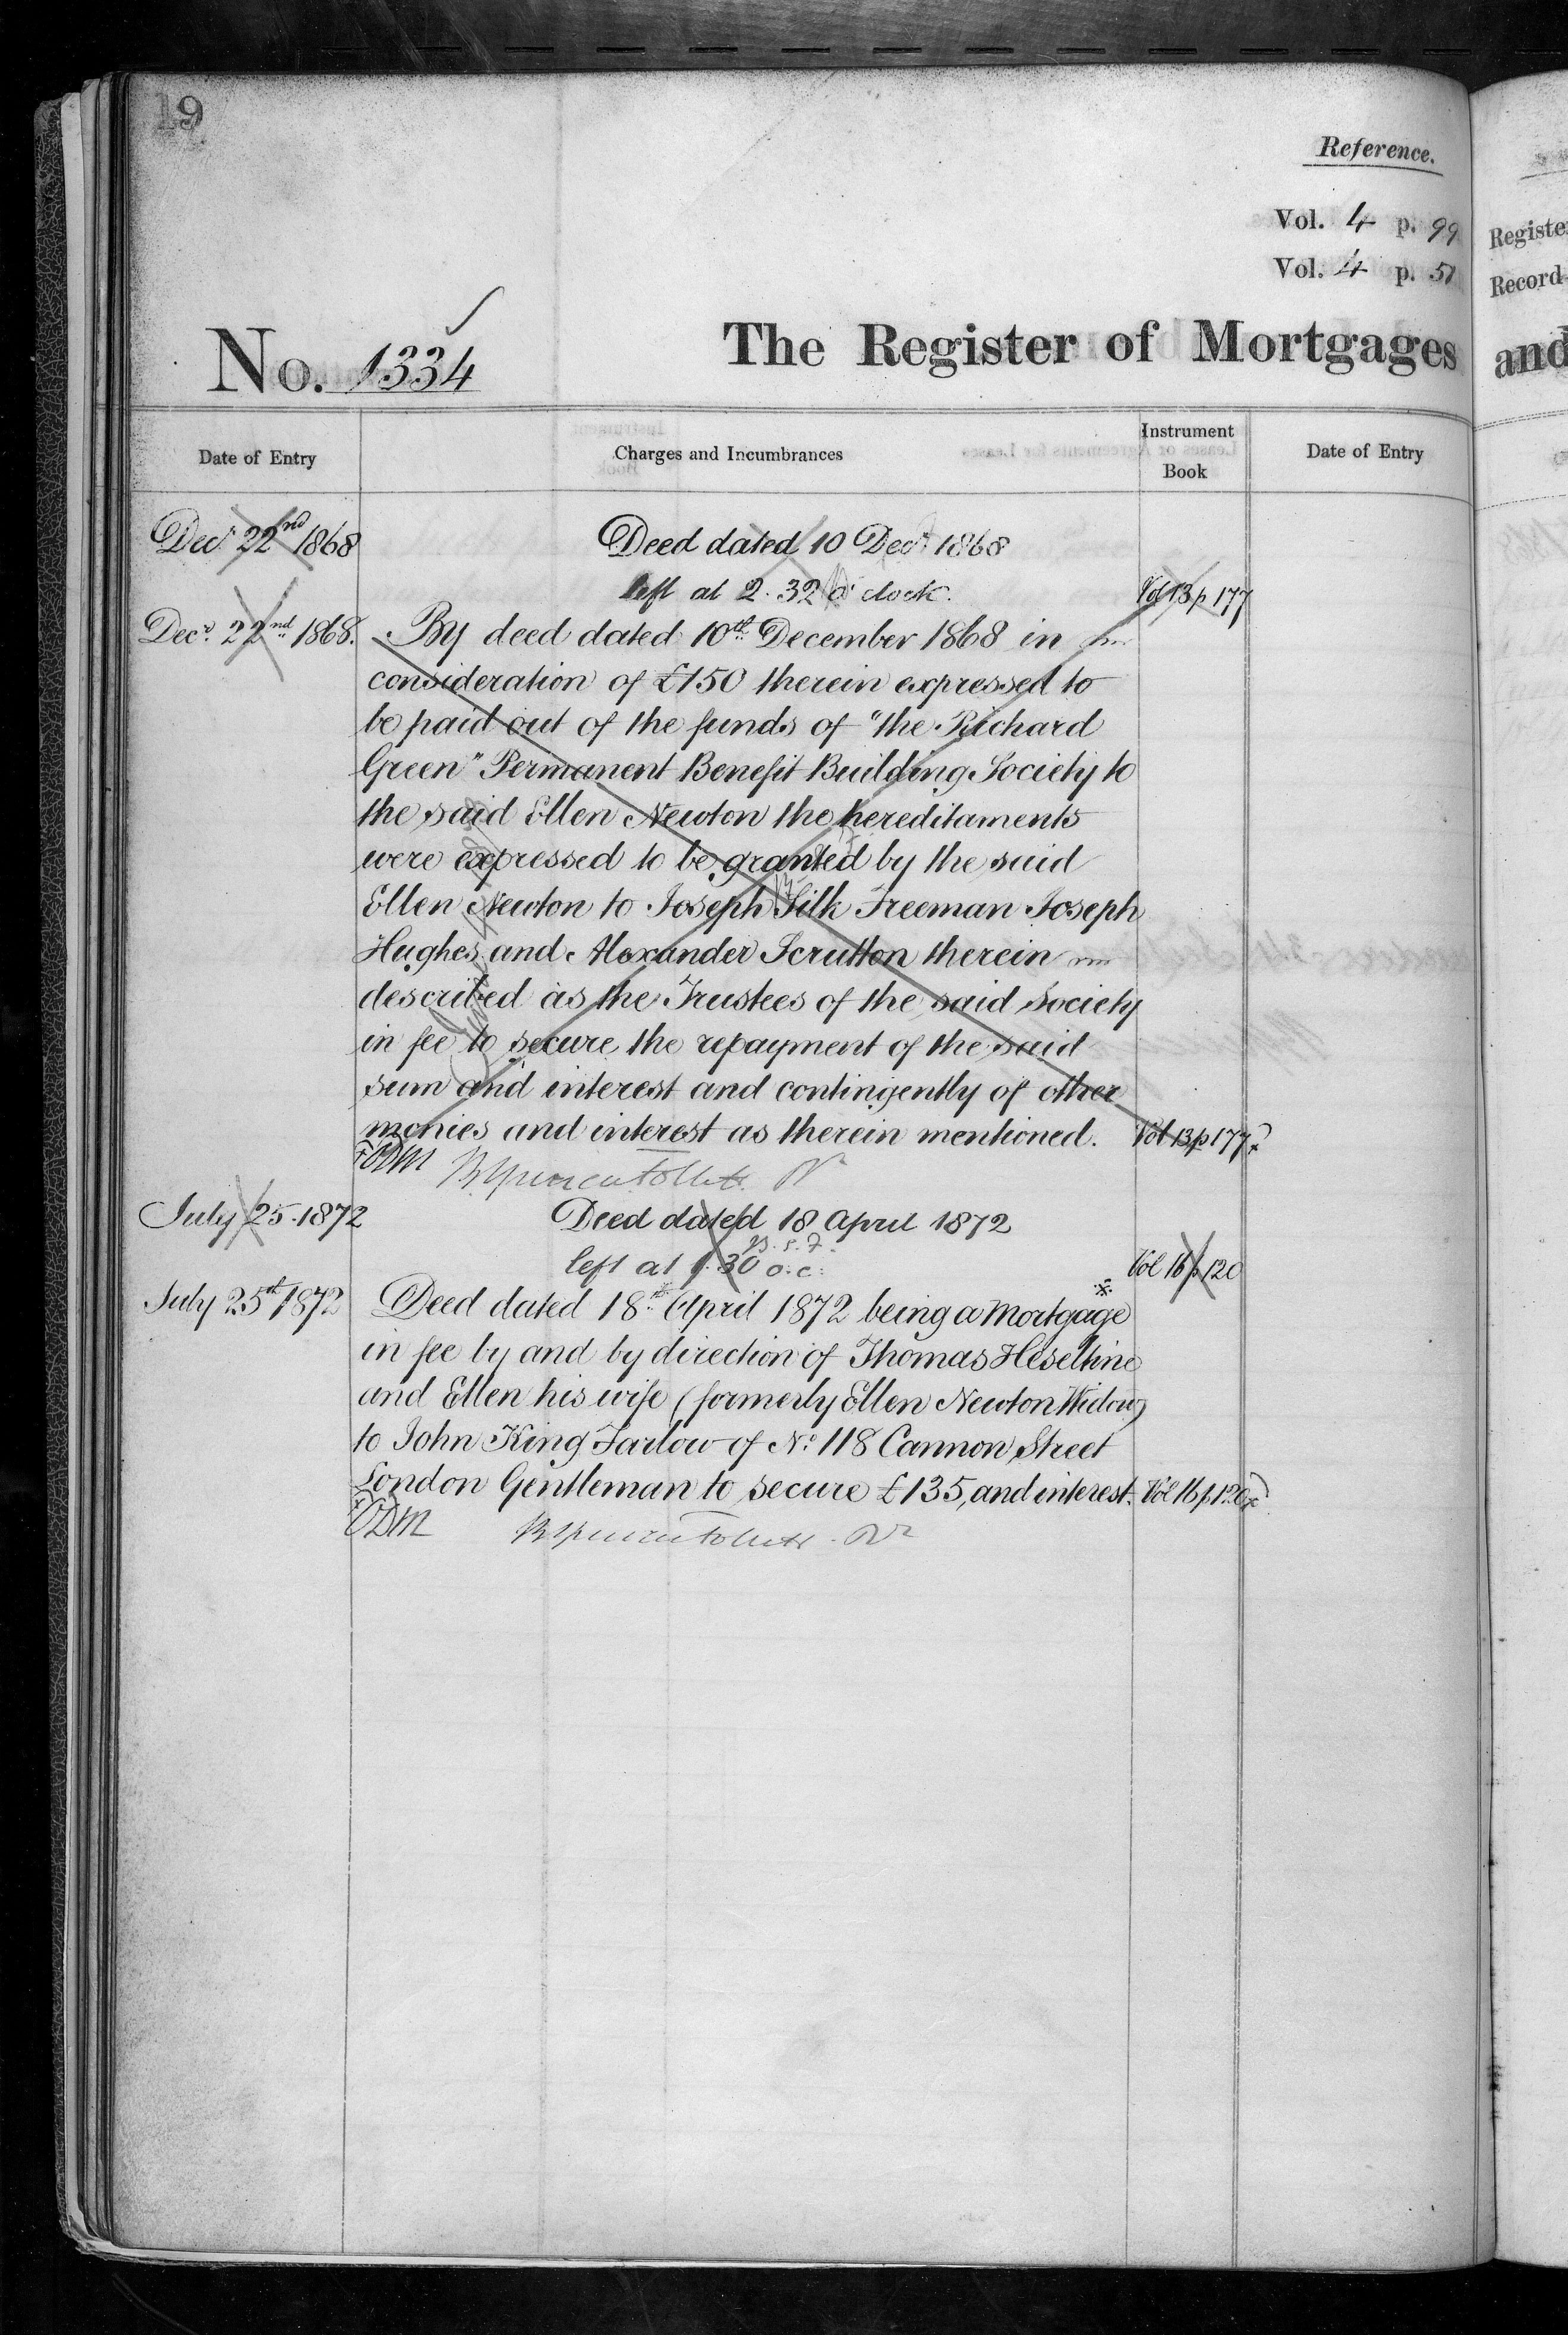 19
Reference.
Vol. 4 p. 99
Vol. 4 p. 51
No. 1334
The Register of Mortgages
Date of Entry
Charges and Incumbrances
Instrument Book
Date of Entry
Decr 22nd 1868
Deed dated 10 Decr 1868
left at 2.32 o'clock.
Vol 13 p 177
Decr. 22nd 1868.
By deed dated 10th December 1868 in
consideration of £150 therein expressed to
be paid out of the funds of "the Richard
Green" Permanent Benefit Building Society to
the said Ellen Newton the hereditaments
were expressed to be granted by the said
Ellen Newton to Joseph Silk Freeman Joseph
Hughes and Alexander Scrutton therein
described as the Trustees of the said Society
in fee to secure the repayment of the said
sum and interest and contingently of other
monies and interest as therein mentioned.
Vol 13 p 177
July 25. 1872
Deed dated 18 April 1872
left at 1.30 o.c.
Vol 16 p 120
July 25th 1872
Deed dated 18th April 1872 being a Mortgage
in fee by and by direction of Thomas Heseltine
and Ellen his wife (formerly Ellen Newton Widow)
to John King Farlow of No. 118 Cannon Street
London Gentleman to secure £135, and interest.
Vol 16 p 120
Registe
Record
and